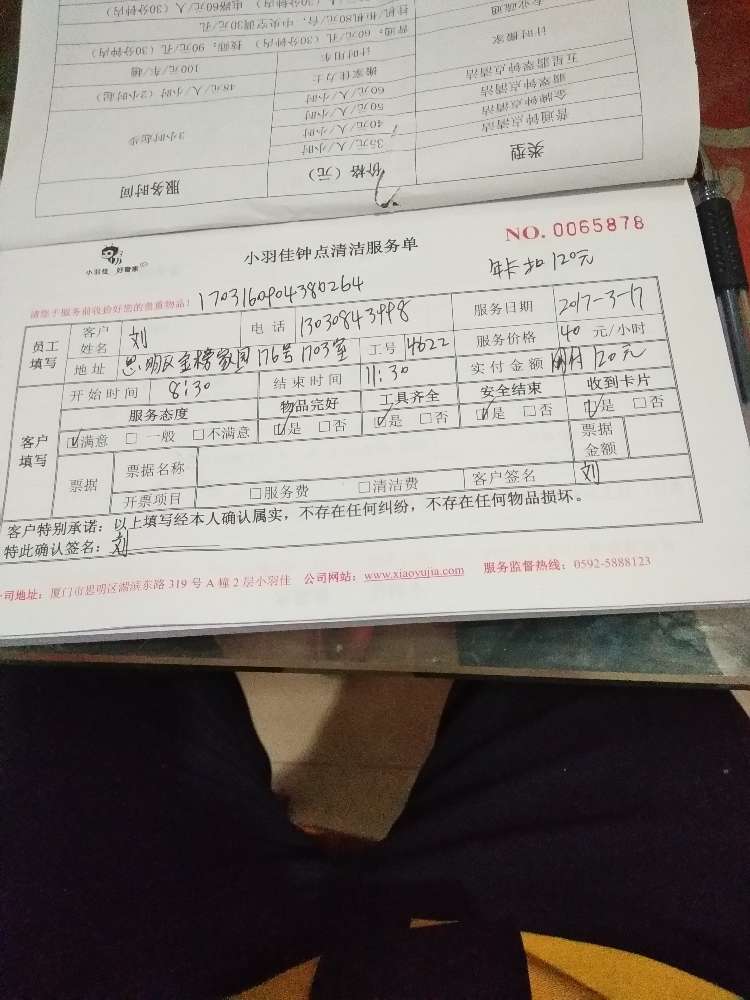 类型
价格（元）
服务时间
普通钟点清洁
35元/人/小时
3小时起步
金牌钟点清洁
40元/人/小时
翡翠钟点清洁
50元/人/小时
五星翡翠钟点清洁
60元/人/小时
搬家佳力士
48元/人/小时（2小时起）
计时搬家
计时用车
100元/车/趟
专业疏通
普通：60元/孔（30分钟内） 技师：90元/孔（30分钟内）
小羽佳 好管家
小羽佳钟点清洁服务单
NO. 0065878
年卡扣120元
请您于服务前收捡好您的贵重物品！
1703160904380264
员工填写
客户姓名
刘
电话
13030843998
服务日期
2017-3-17
地址
思明区金榜家园176号1703室
工号
4622
服务价格
40 元/小时
开始时间
8:30
结束时间
11:30
实付金额
120元
客户填写
服务态度
物品完好
工具齐全
安全结束
收到卡片
☑满意 □一般 □不满意
☑是 □否
☑是 □否
☑是 □否
☑是 □否
票据
票据名称
票据金额
开票项目
□服务费
□清洁费
客户签名
刘
客户特别承诺：以上填写经本人确认属实，不存在任何纠纷，不存在任何物品损坏。
特此确认签名：刘
司地址：厦门市思明区湖滨东路 319 号 A 幢 2 层小羽佳 公司网站：www.xiaoyujia.com 服务监督热线：0592-5888123